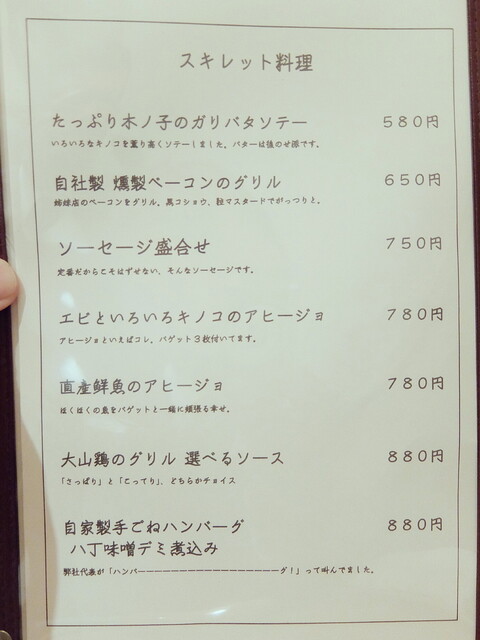 スキレット料理
たっぷり木ノ子のガリバタソテー 580円
いろいろなキノコを薫り高くソテーしました。バターは後のせ派です。
自社製 燻製ベーコンのグリル 650円
姉妹店のベーコンをグリル。黒コショウ、粒マスタードでがっつりと。
ソーセージ盛合せ 750円
定番だからこそはずせない、そんなソーセージです。
エビといろいろキノコのアヒージョ 780円
アヒージョといえばコレ。バゲット3枚付いてます。
直産鮮魚のアヒージョ 780円
ほくほくの魚をバゲットと一緒に頬張る幸せ。
大山鶏のグリル 選べるソース 880円
「さっぱり」と「こってり」、どちらかチョイス
自家製手ごねハンバーグ 880円
八丁味噌デミ煮込み
弊社代表が「ハンバーーーーーーーーーーーーーーーーーーーグ！」って叫んでました。